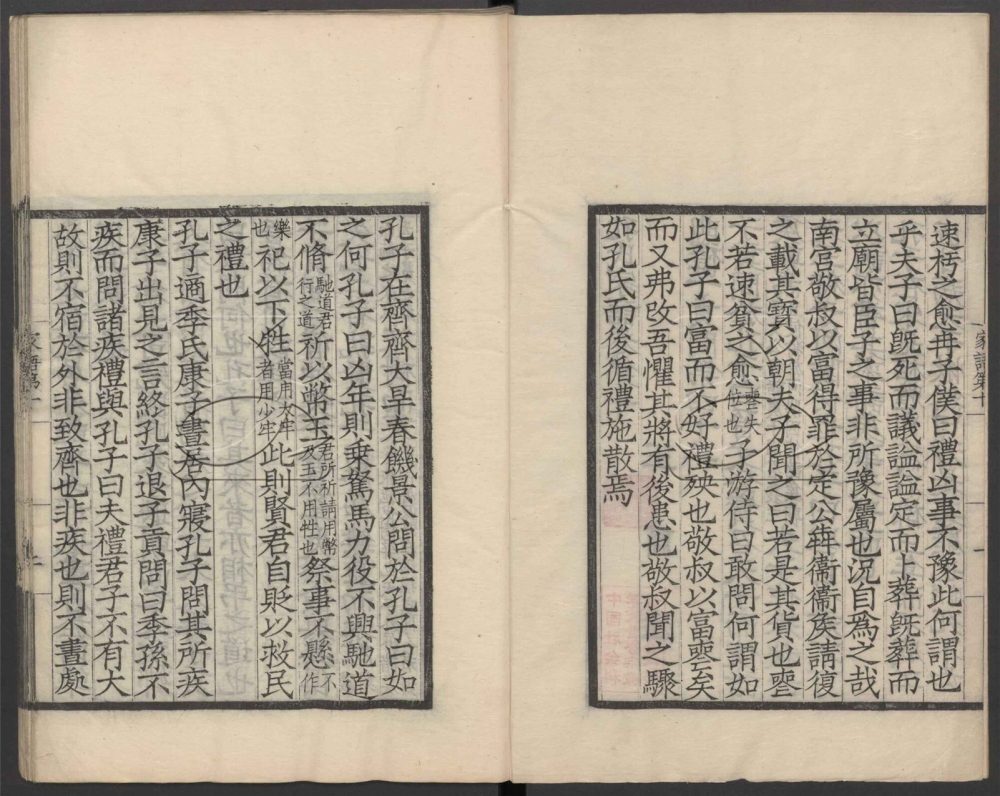 速朽之愈冉子僕曰禮凶事不豫此何謂也
乎夫子曰旣死而議謚謚定而卜葬旣葬而
立廟皆臣子之事非所豫屬也況自為之哉
南宮敬叔以富得罪於定公犇衞衞侯請復
之載其寳以朝夫子聞之曰若是其貨也䘮
不若速貧之愈䘮失位也子游侍曰敢問何謂如
此孔子曰富而不好禮殃也敬叔以富䘮矣
而又弗攺吾懼其將有後患也敬叔聞之驟
如孔氏而後循禮施散焉
家語第十
孔子在齊齊大旱春饑景公問於孔子曰如
之何孔子曰凶年則乗駑馬力役不興馳道
不脩馳道君行之道祈以幣玉君所祈請用幣及玉不用牲也祭事不懸不作
樂也祀以下牲當用大牢者用少牢此則賢君自貶以救民
之禮也
孔子適季氏康子晝居內寢孔子問其所疾
康子出見之言終孔子退子貢問曰季孫不
疾而問諸疾禮與孔子曰夫禮君子不有大
故則不宿於外非致齊也非疾也則不晝處